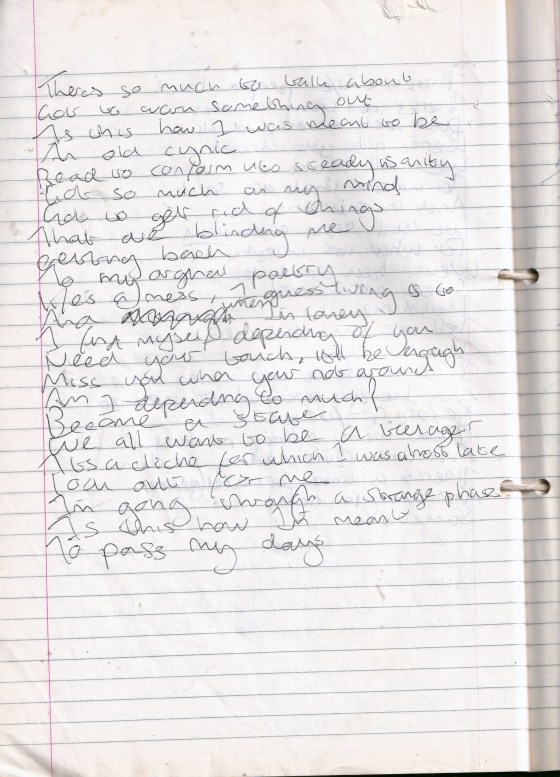 Theres so much to talk about
Got to warn something out
Is this how I was meant to be
An old cynic
Read to conform into steady insanity
Got so much on my mind
Got to get rid of things
That are blinding me
getting back
To my orginal poetry
Life's a mess, I guess living is to
And when Im lonely
I find myself depending of you
Need your touch, itll be enough
Miss you when your not around
Am I depending to much?
Become a state
We all want to be a teenager
Its a cliche for which I was almost late
Look out for me
Im going through a strange phase
Is this how Im meant
To pass my days